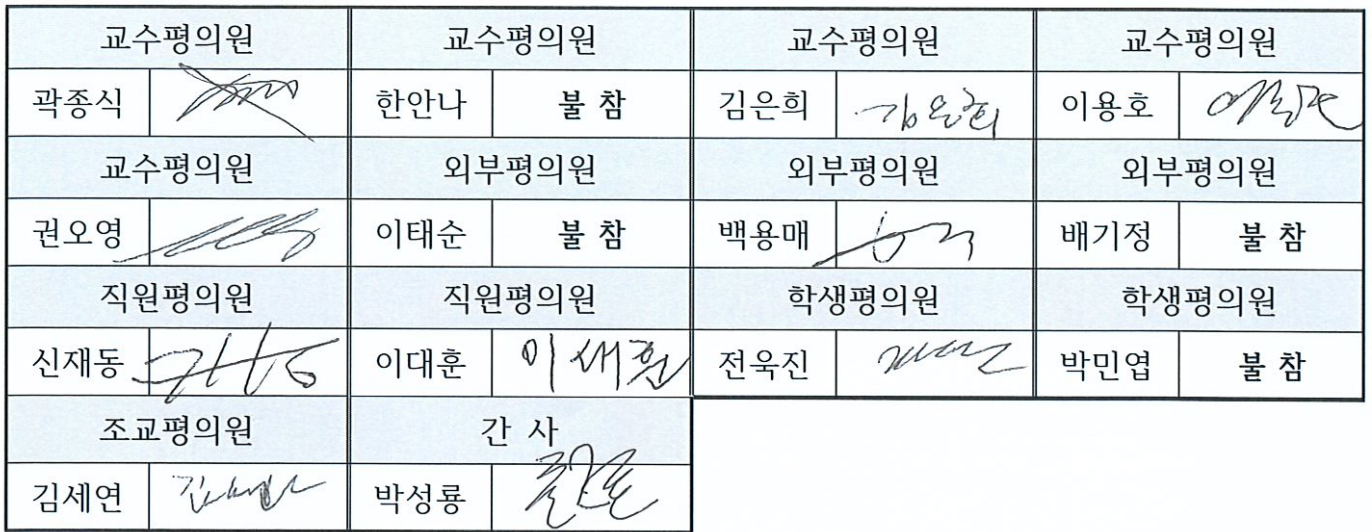 교수평의원 교수평의원 교수평의원 교수평의원
곽종식 한안나 불 참 김은희 김은희 이용호
교수평의원 외부평의원 외부평의원 외부평의원
권오영 이태순 불 참 백용매 배기정 불 참
직원평의원 직원평의원 학생평의원 학생평의원
신재동 이대훈 전욱진 박민엽 불 참
조교평의원 간 사
김세연 박성룡